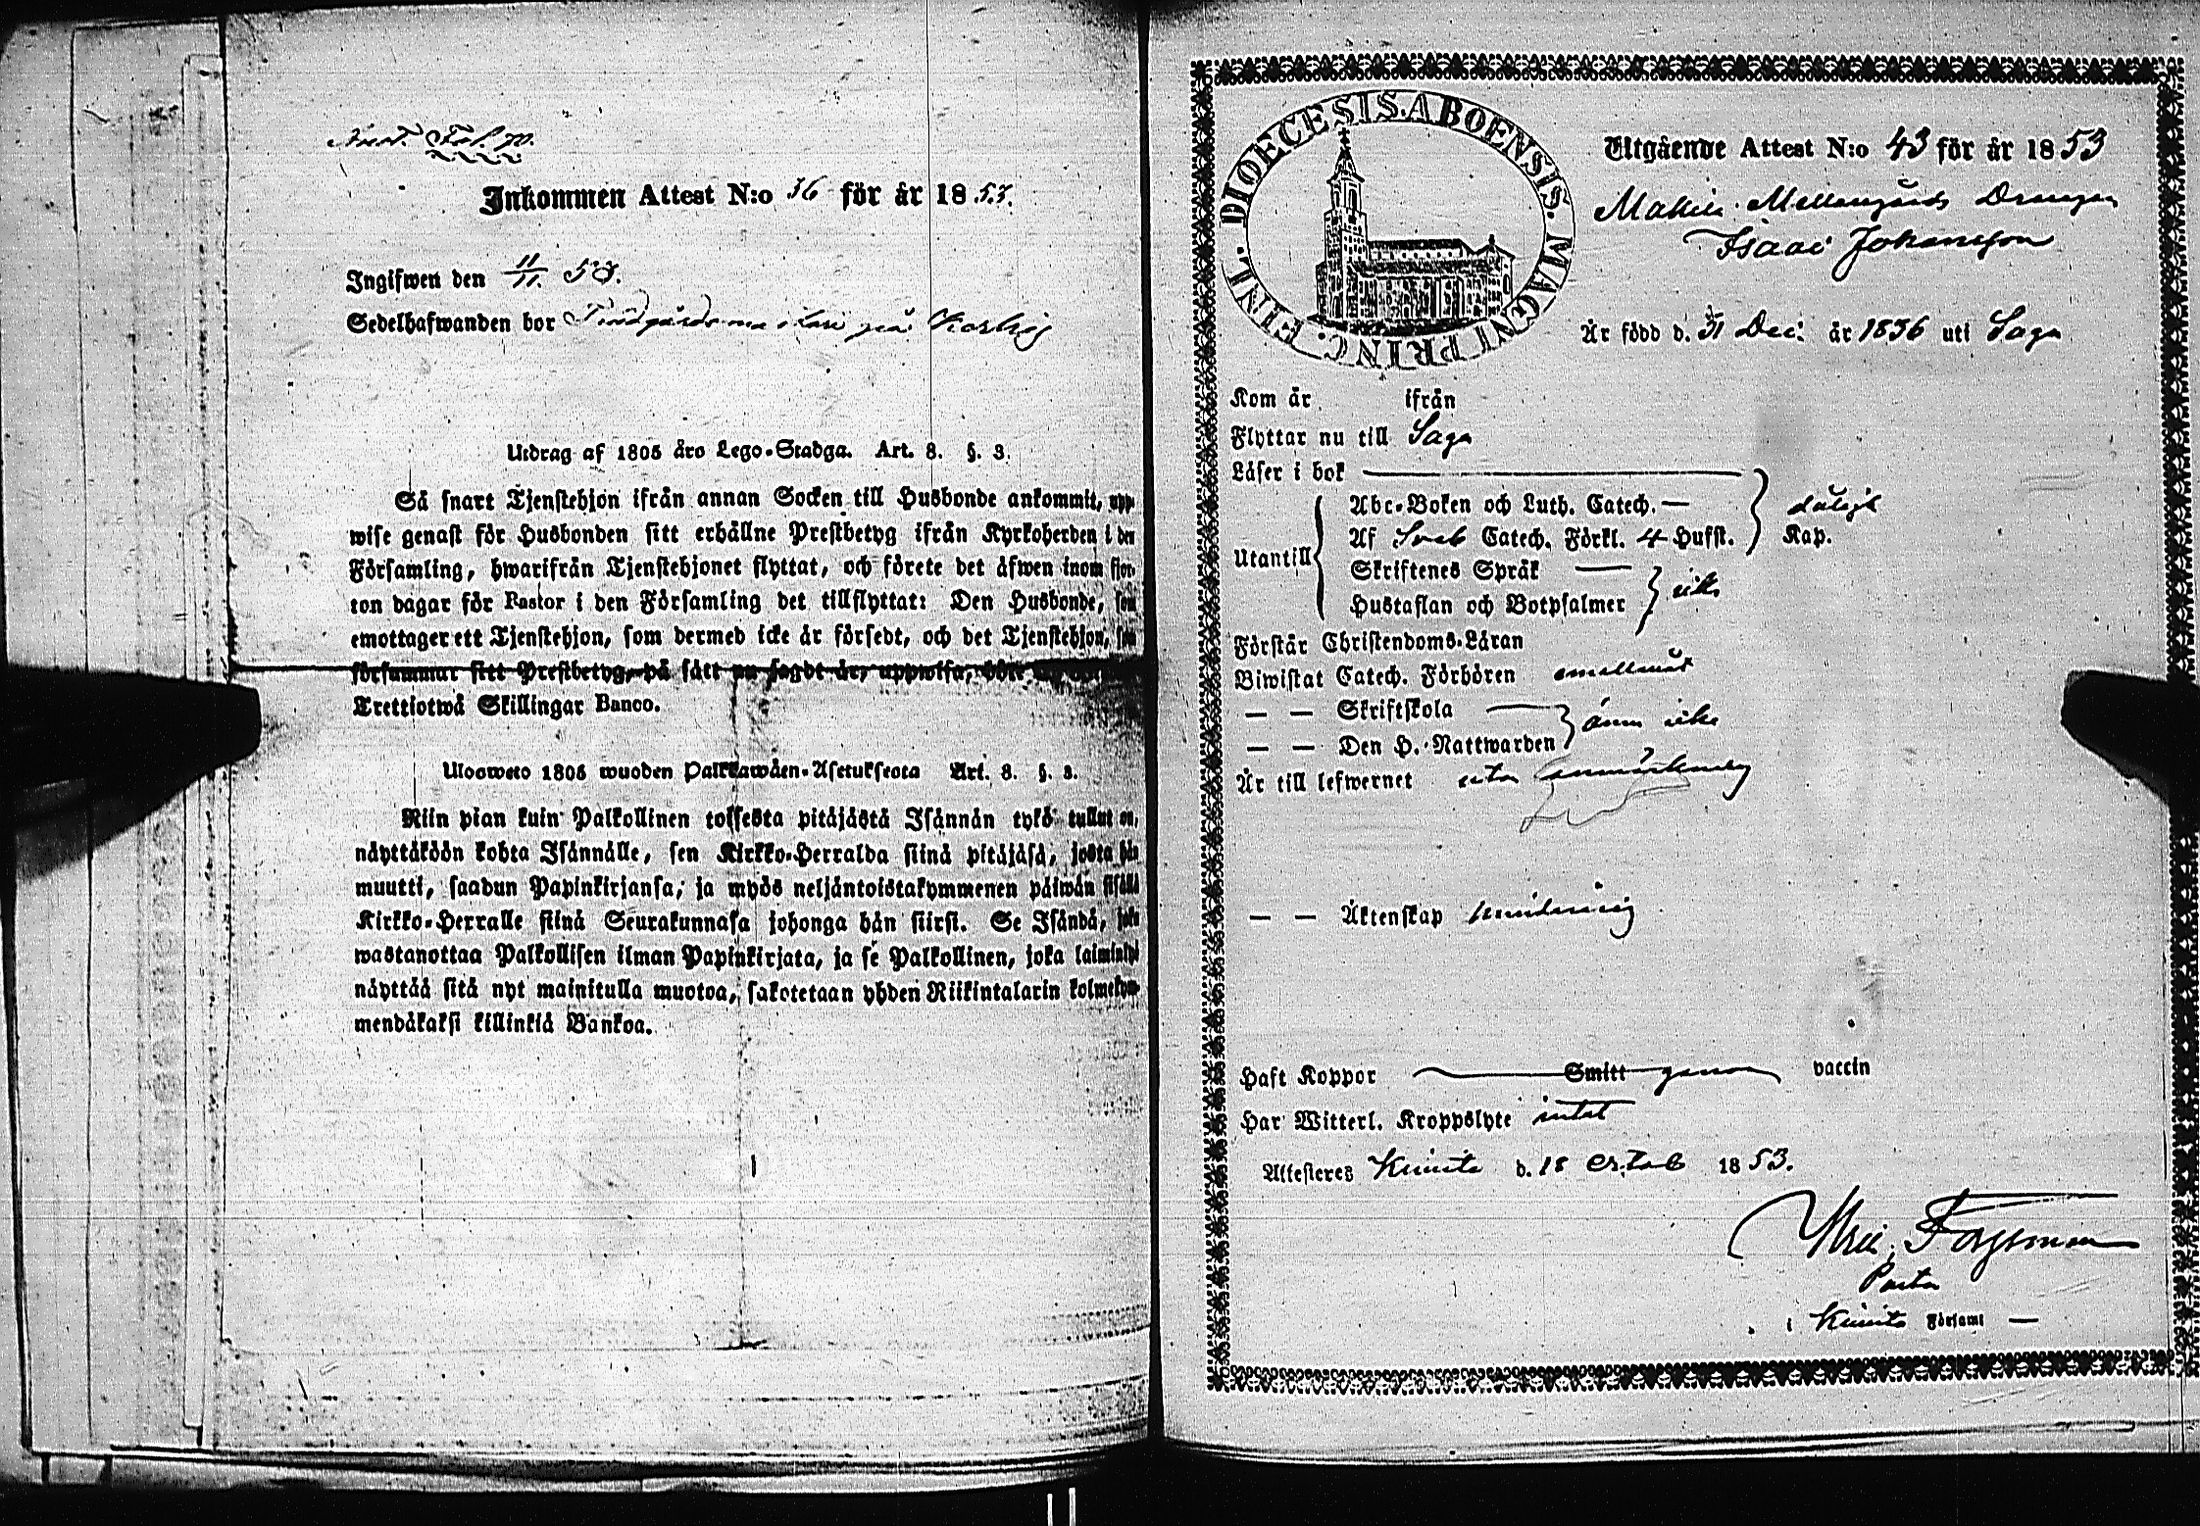 Fol. 70.
Inkommen Attest N:o 36 för år 1853.
Ingifwen den 11/11. 53.
Sedelhafwanden bor på
Utdrag af 1805 års Lego-Stadga. Art. 8. §. 3.
Så snart Tjenstehjon ifrån annan Socken till Husbonde ankommit, upp
wise genast för Husbonden sitt erhållne Prestbetyg ifrån Kyrkoherden i den
Församling, hwarifrån Tjenstehjonet flyttat, och förete det äfwen inom fjor
ton dagar för Pastor i den Församling det tillflyttat: Den Husbonde, som
emottager ett Tjenstehjon, som dermed icke är försedt, och det Tjenstehjon, som
försummar sitt Prestbetyg, på sätt nu sagdt är, uppwisa, böte
Trettiotwå Skillingar Banco.
Ulosweto 1805 wuoden Palkkawäen-Asetuksesta Art. 8. §. 3.
Niin pian kuin Palkollinen toisesta pitäjästä Isännän tykö tullut on,
näyttäköön kohta Isännälle, sen Kirkko-Herralda siinä pitäjäsä, josta hän
muutti, saadun Papinkirjansa, ja myös neljäntoistakymmenen päiwän sisällä
Kirkko-Herralle siinä Seurakunnasa johonga hän siirsi. Se Isändä, joka
wastanottaa Palkollisen ilman Papinkirjata, ja se Palkollinen, joka laiminlyö
näyttää sitä nyt mainitulla muotoa, sakotetaan yhden Riikintalarin kolmekym
mendäkaksi killinkiä Bankoa.
DIOECESIS. ABOENSIS. MAGNI PRINC. FINL.
Utgående Attest N:o 43 för år 1853
Mattila Mellangårds Drengen
Isaac Johansson
Är född d. 31 Dec: år 1836 uti Sagu
Kom år ifrån
Flyttar nu till Sagu
Läser i bok
Utantill
Abc-Boken och Luth. Catech. —
dåligt
Af Sveb Catech. Förkl. 4 Hufst. Kap.
Skriftenes Språk —
Hustaflan och Botpsalmer
icke
Förstår Christendoms-Läran
Biwistat Catech. Förhören emellanåt
— — Skriftskola —
ännu icke
— — Den H. Nattwarden
Är till lefwernet utan anmärkning
— — Äktenskap minderårig
Haft Koppor Smitt genom vaccin
Har Witterl. Kroppslyte intet
Attesteres Kimito d. 18 October 1853.
Pastor
i Kimito Församl —